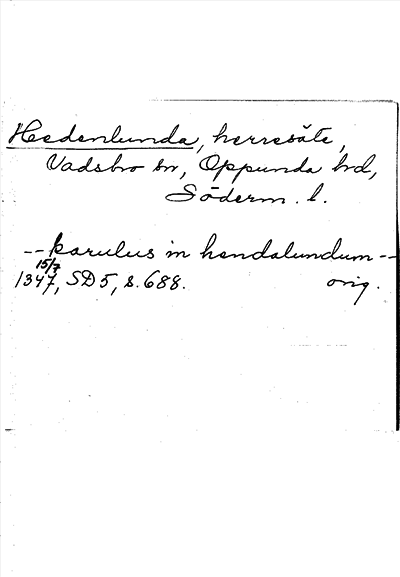 Hedenlunda, herresäte,
Vadsbro sn, Oppunda hd,
Söderm. l.
-- karulus in hendalundum --
15/7
1347, SD 5, s. 688. orig.